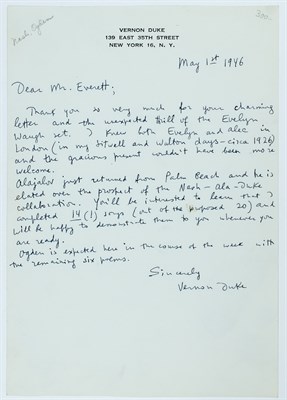 Nash, Ogden
300-
VERNON DUKE
139 EAST 35TH STREET
NEW YORK 16, N. Y.
May 1st 1946
Dear Mr. Everett;
Thank you so very much for your charming
letter and the unexpected thrill of the Evelyn
Waugh set. I knew both Evelyn and Alec in
London (in my Sitwell and Walton days—circa 1926)
and the gracious present couldn't have been more
welcome.
Alajalov just returned from Palm Beach and he is
elated over the prospect of the Nash-Ala-Duke
collaboration. You'll be interested to learn that I
completed 14 (!) songs (out of the proposed 20) and
will be happy to demonstrate them to you whenever you
are ready.
Ogden is expected here in the course of the week with
the remaining six poems.
Sincerely
Vernon Duke